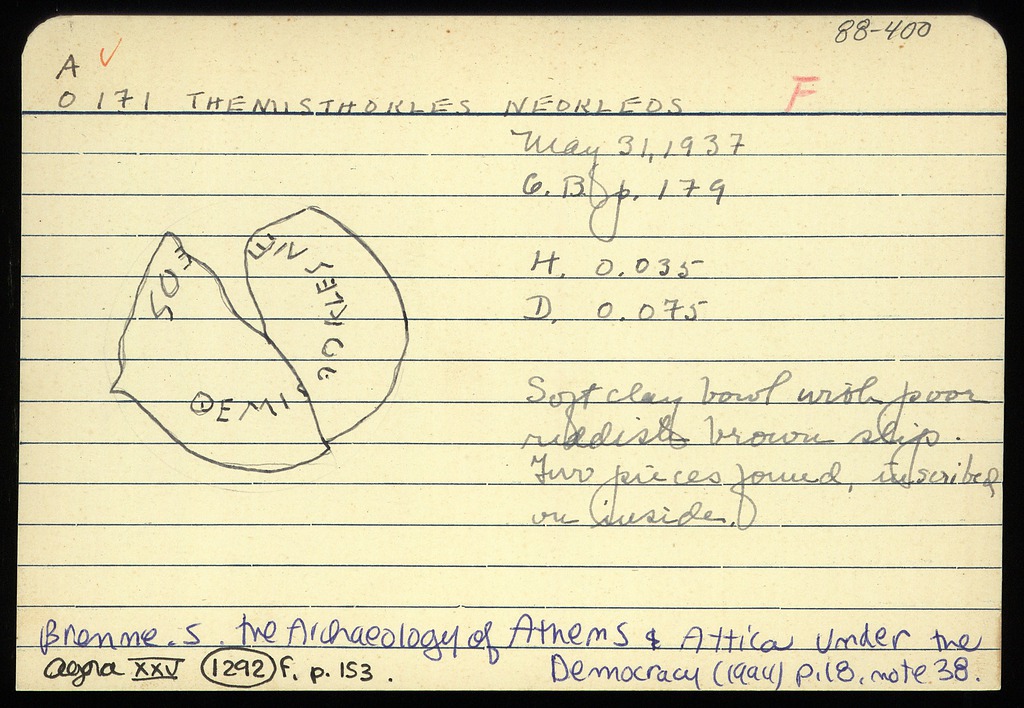 88-400
A ✓
O 171 THEMISTHOKLES NEOKLEOS F
May 31, 1937
G. B. p. 179
H. 0.035
D. 0.075
ΘEMI
Soft clay bowl with poor
reddish brown slip.
Two pieces joined, inscribed
on inside.
Brenne. S. the Archaeology of Athens & Attica under the
Agora XXV 1292 F. p. 153. Democracy (1994) p. 18, note 38.